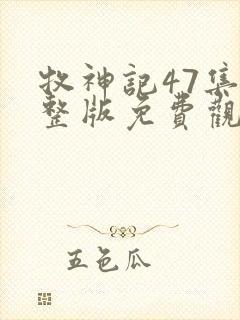 牧神記47集
整版免費觀
五色瓜